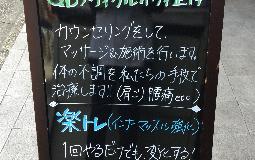 カウンセリングをして、
マッサージ&施術を行います。
体の不調を私たちの手技で
治療します!(肩こり腰痛etc)
楽トレ(インナーマッスル強化)
1回やるだけでも変化する!